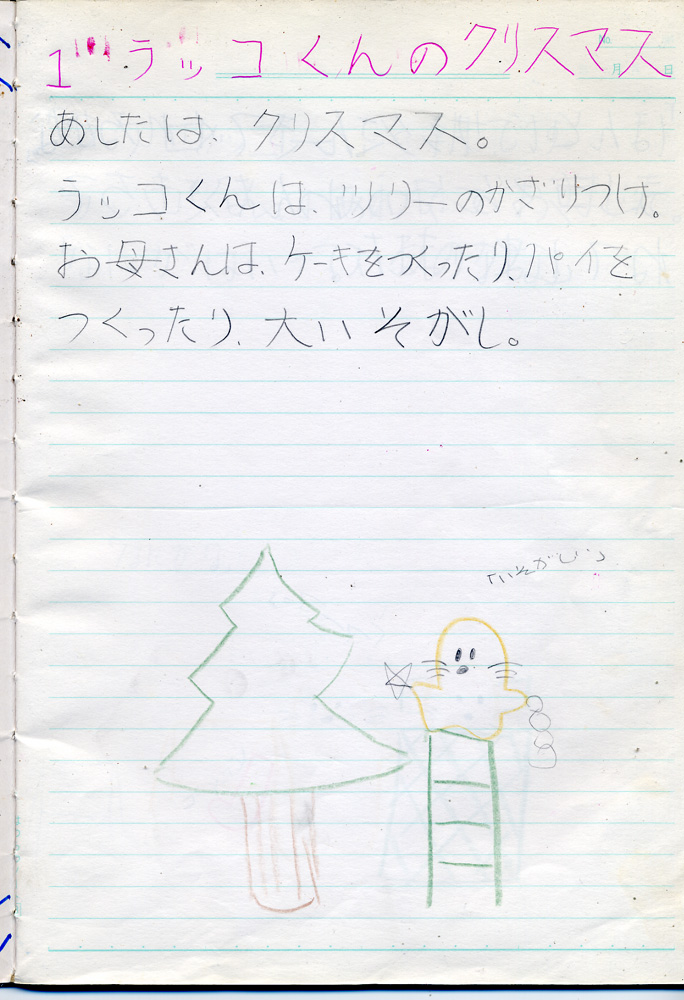 1" ラッコくんのクリスマス
あしたは、クリスマス。
ラッコくんは、ツリーのかざりつけ。
お母さんは、ケーキをつくったり、パイを
つくったり、大いそがし。
「いそがしい」
No.
月 日